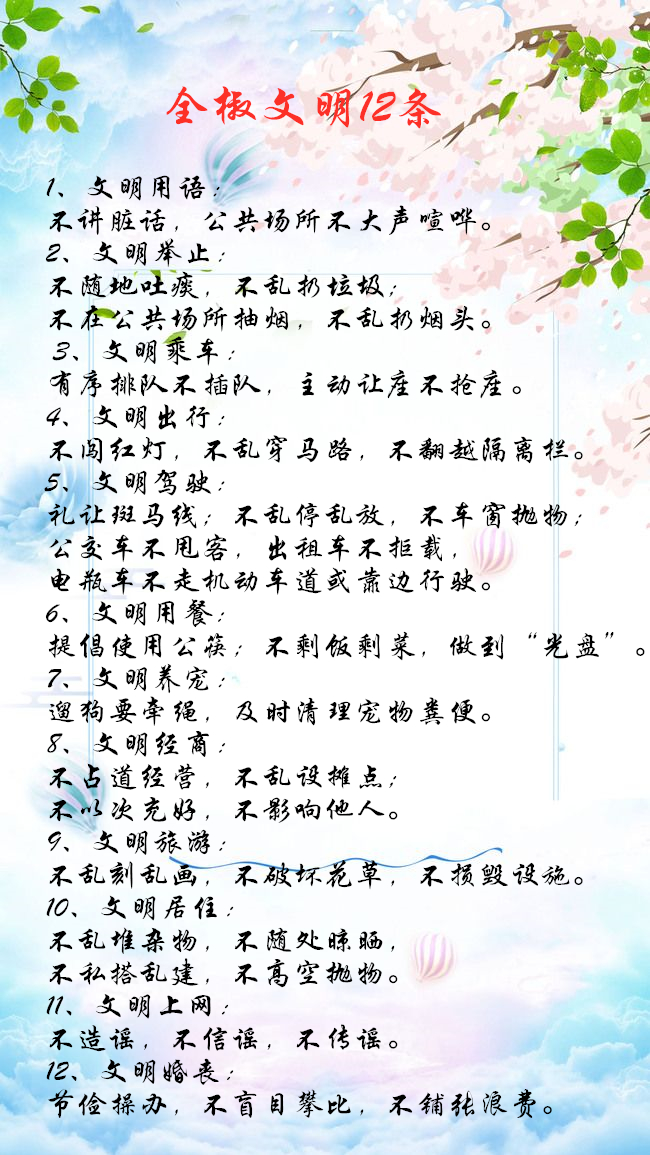 全椒文明12条
1、文明用语：
不讲脏话，公共场所不大声喧哗。
2、文明举止：
不随地吐痰，不乱扔垃圾；
不在公共场所抽烟，不乱扔烟头。
3、文明乘车：
有序排队不插队，主动让座不抢座。
4、文明出行：
不闯红灯，不乱穿马路，不翻越隔离栏。
5、文明驾驶：
礼让斑马线；不乱停乱放，不车窗抛物；
公交车不甩客，出租车不拒载，
电瓶车不走机动车道或靠边行驶。
6、文明用餐：
提倡使用公筷；不剩饭剩菜，做到“光盘”。
7、文明养宠：
遛狗要牵绳，及时清理宠物粪便。
8、文明经商：
不占道经营，不乱设摊点；
不以次充好，不影响他人。
9、文明旅游：
不乱刻乱画，不破坏花草，不损毁设施。
10、文明居住：
不乱堆杂物，不随处晾晒，
不私搭乱建，不高空抛物。
11、文明上网：
不造谣，不信谣，不传谣。
12、文明婚丧：
节俭操办，不盲目攀比，不铺张浪费。